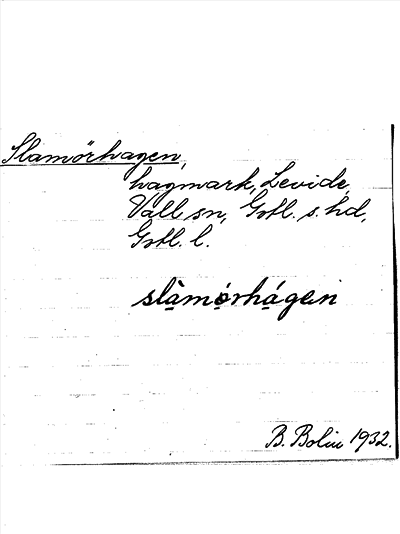 Slamörhagen,
hagmark, Levide,
Vall sn, Gotl. s. hd,
Gotl. l.
slàmórhágein
B. Bolin 1932.